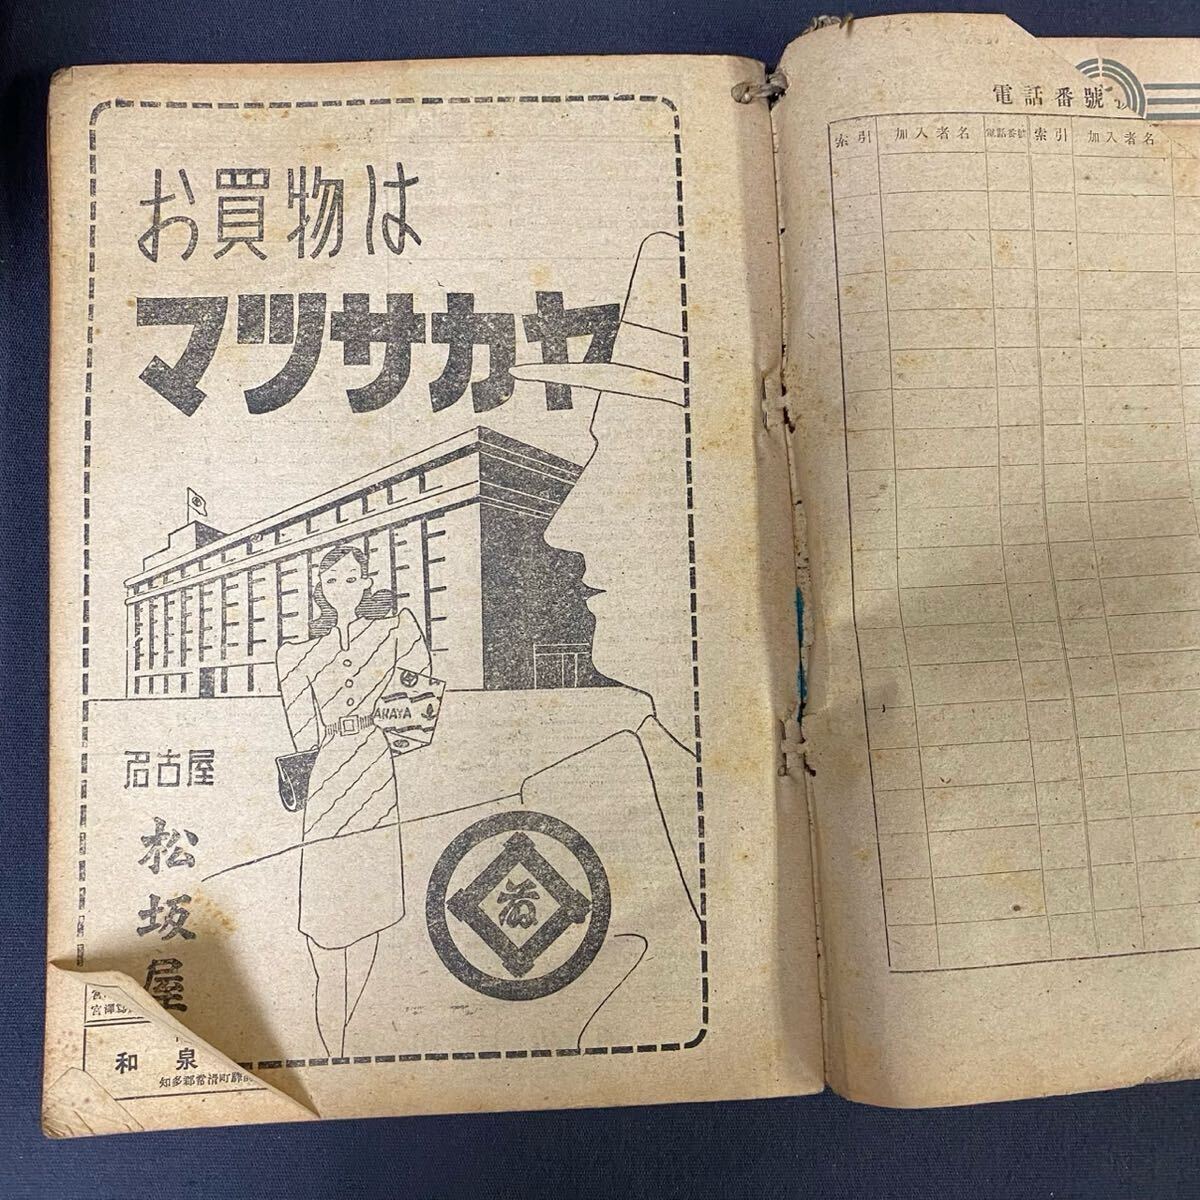 お買物は
マツサカヤ
AKAYA
名古屋
松坂屋
和泉
知多郡常滑町
電話番號
索引 加入者名 電話番號 索引 加入者名